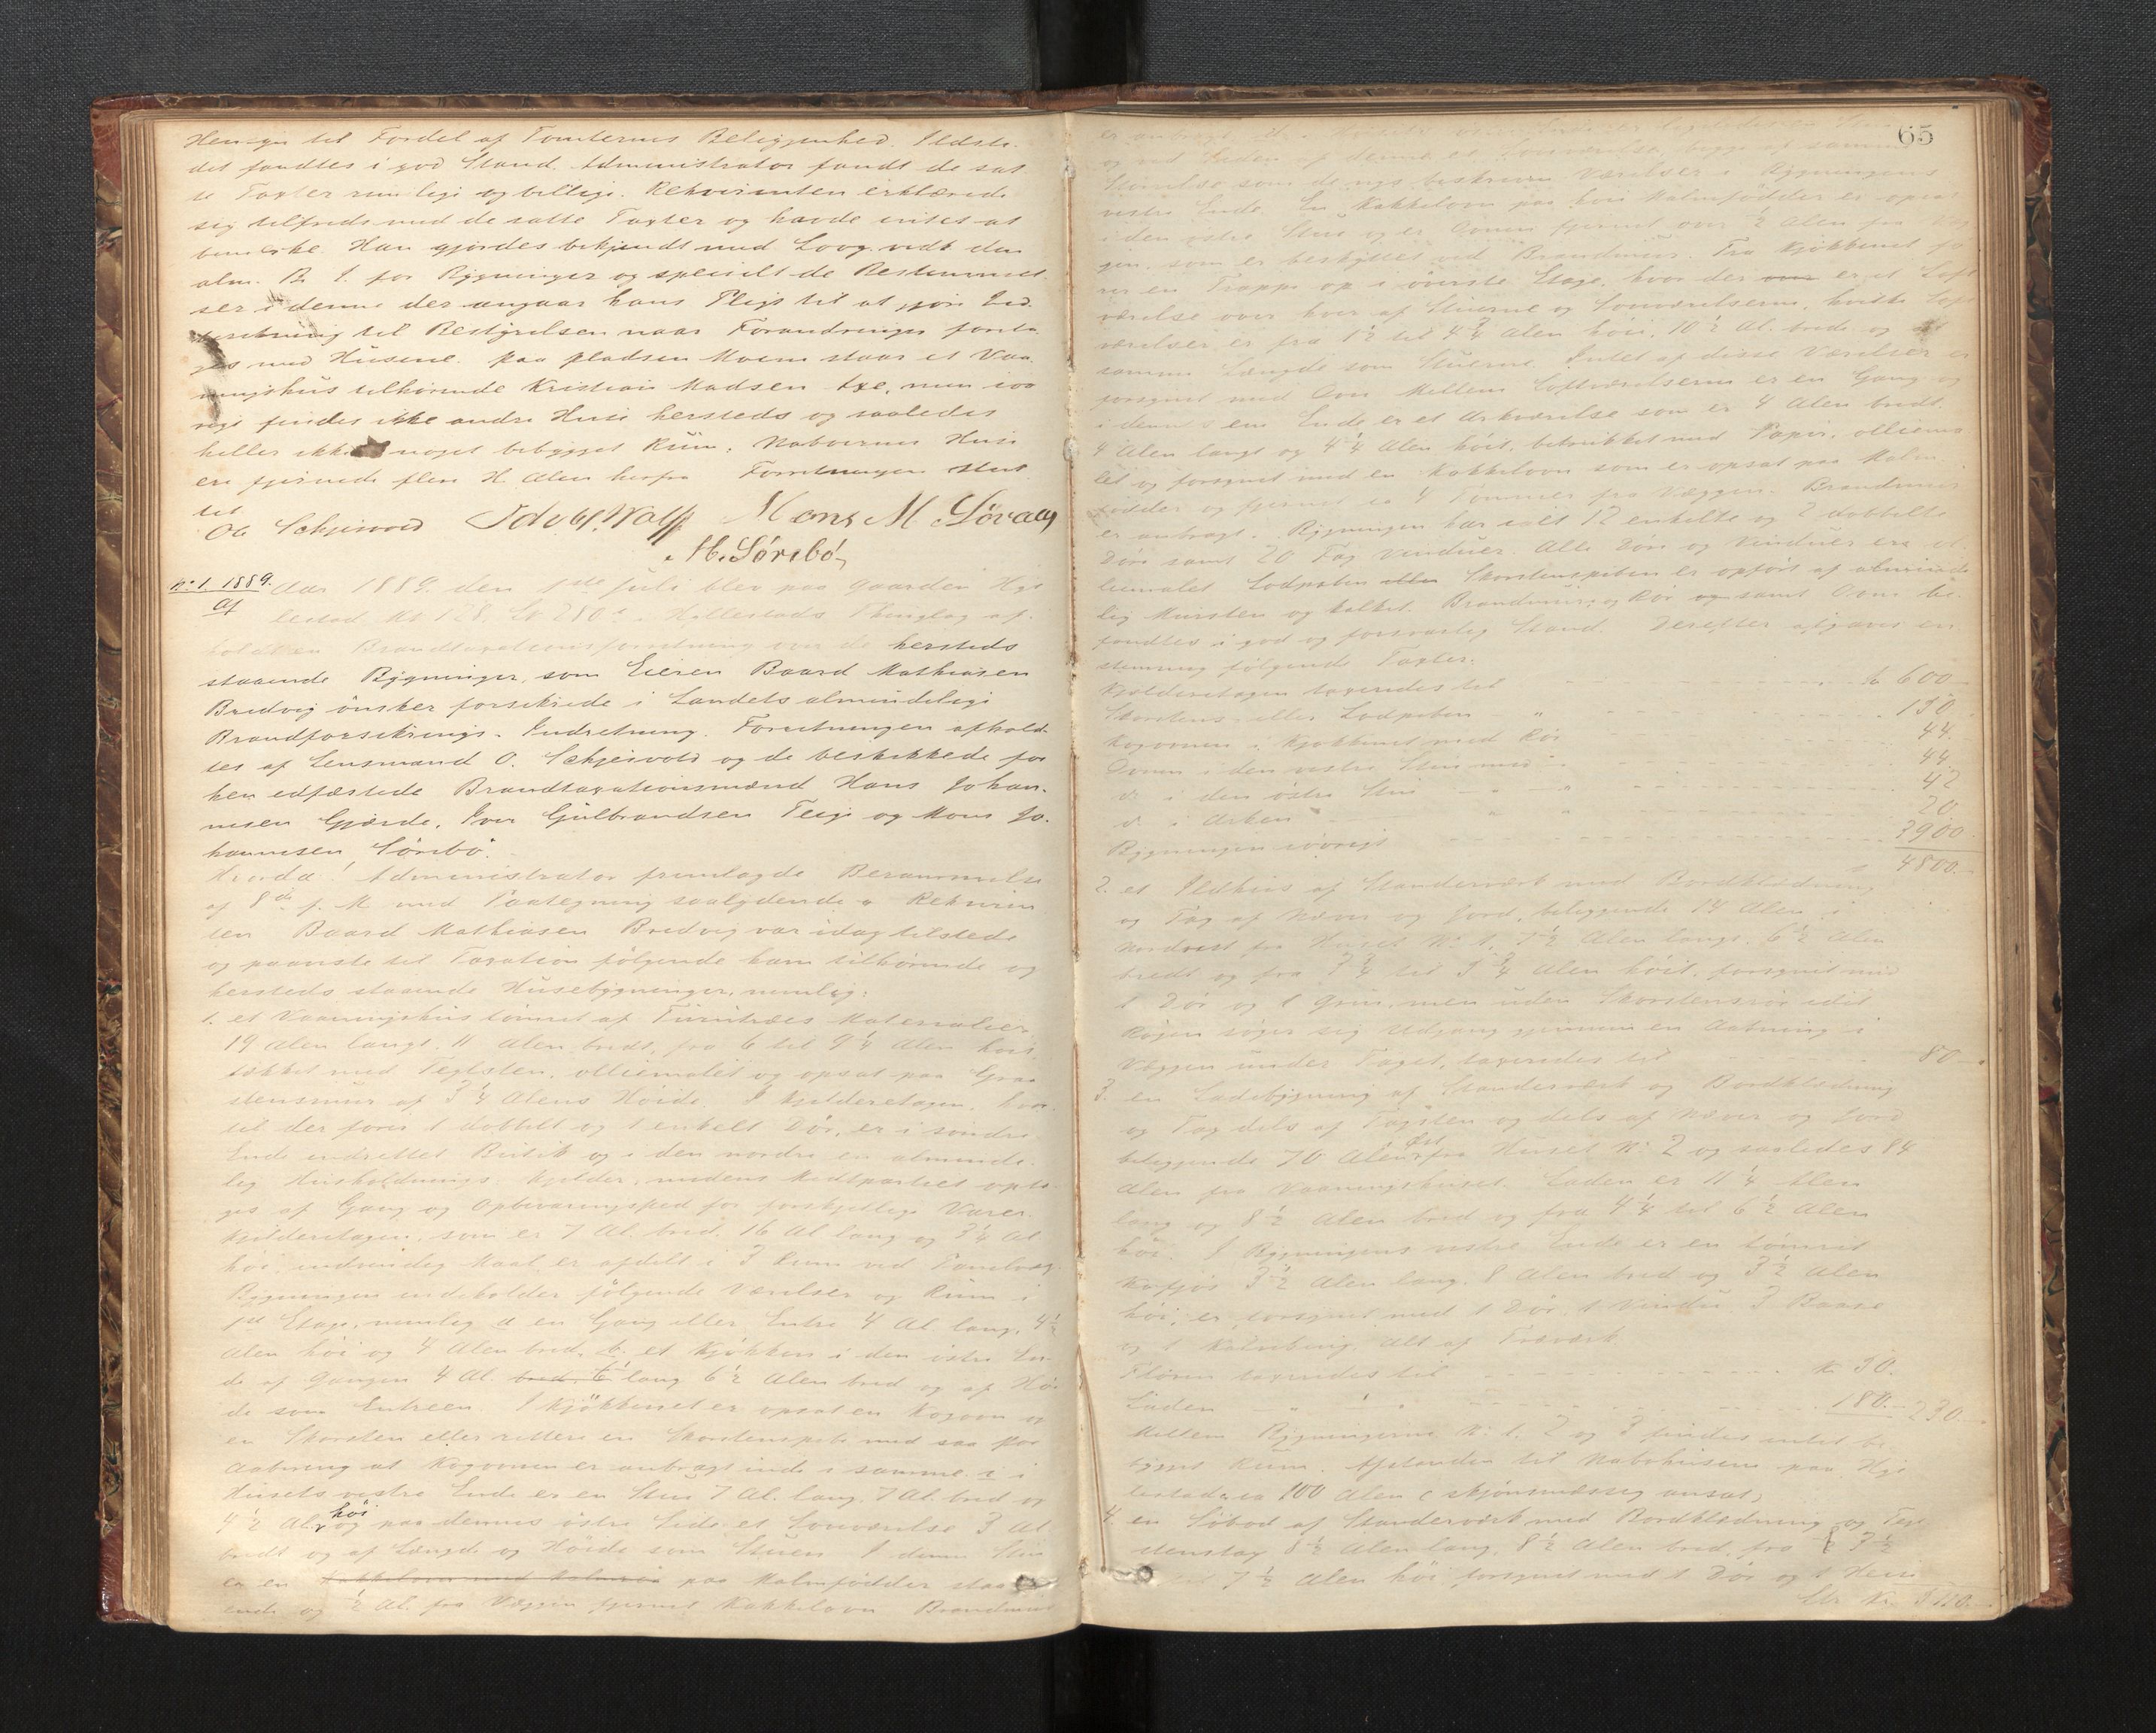 Hensyn til Fordel af Tomternes Beliggenhed. Ildste-
det fandtes i god Stand. Administrator fandt de sat
te Taxter rimlige og billige. Rekvirenten erklærede
sig tilfreds med de satte Taxter og havde intet at
bemærke. Han gjordes bekjendt med Lovg. vedk den
alm. B. I. for Bygninger og specielt de Bestemmel-
ser i denne der angaar hans Pligt til at gjøre Ind-
beretning til Bestyrelsen naar Forandringer foreta
ges med Husene. Paa pladsen Moen staar et Vaa-
ningshus tilhørende Kristian Madsen Axe, men iøv
rigt findes ikke andre Huse hersteds og saaledes
heller ikke noget bebygget Rum. Naboernes Huse
ere fjernede flere H. Alen herfra Forretningen slut
tet
O. Schjesvold Adolf Wolff Mons M Løvaas
M. Sørebø
No. 1. 1889.
Aar 1889 den 1ste Juli blev paa Gaarden Hyl
lestad Mt 128, Lb 280 i Hyllestads Thinglag af-
holdt en Brandtaxationsforretning over de hersteds
staaende Bygninger, som Eieren Baard Mathiasen
Bredvig ønsker forsikrede i Landets almindelige
Brandforsikrings-Indretning. Forretningen afhold-
tes af Lensmand O. Schjesvold og de beskikkede for
hen edfæstede Brandtaxationsmænd Hans Johan-
nesen Gjærde, Iver Gulbrandsen Teige og Mons Jo-
hannesen Sørebø.
Hvorda! Administrator fremlagde Berammelse
af 8de f. M med Paategning saalydende Rekviren
ten Baard Mathiasen Bredvig var idag tilstede
og paaviste til Taxation følgende ham tilhørende og
hersteds staaende Husebygninger, nemlig:
1. et Vaaningshus tømret af Furutræes Materialier
19 Alen langt, 11 Alen bredt, fra 6 til 9 1/4 Alen høit
tækket med Teglsten, olliemalet og opsat paa Graa
stensmur af 3 1/4 Alens Høide. I Kjelderetagen, hvor-
til der fører 1 dobbelt og 1 enkelt Dør, er i søndre
Ende indrettet Butik og i den nordre en alminde-
lig Husholdnings Kjelder, medens Midtpartiet opta-
ges af Gang og Opbevaringsted for forskjellige Varer.
Kjelderetagen, som er 7 Al. bred, 16 Al lang og 3 1/4 Al
høi indvendig Maal er afdelt i 3 Rum ved Panelvæg.
Bygningen indeholder følgende Værelser og Rum i
1ste Etage, nemlig a en Gang eller Entre 4 Al. lang, 4 1/2
Alen høi og 4 Alen bred, b. et Kjøkken i den østre En-
de af Gangen 4 Al. bred, 6 lang 6 1/2 Alen bred og af Høi
de som Entreen. I Kjøkkenet er opsat en Kogovn og
en Skorsten eller rettere en Skorstenspibe med saa stor
Aabning at Kogovnen er anbragt inde i samme. c i
Husets vestre Ende er en Stue 7 Al. lang, 7 Al. bred og
4 1/2 Al. høi og paa dennes østre Side et Soveværelse 3 Al
bredt og af Længde og Høide som Stuen. I denne Stue
er en Kakkelovn med Kolonrør paa Malmfødder staa
ende og 1/2 Al. fra Væggen fjernet Kakkelovn Brandmur
65
og ved Siden af denne et Soveværelse, begge af samme
Størrelse som de nys beskrevne Værelser i Bygningens
vestre Ende. En Kakkelovn paa høie Malmfødder er opsat
i den østre Stue og er Ovnen fjernet over 1/2 Alen fra Væg
gen, som er beskyttet ved Brandmur. Fra Kjøkkenet fø
rer en Trappe op i øverste Etage, hvor der over er et Loft
værelse over hver af Stuerne og Soveværelserne, hvilke Loft
værelser er fra 1 1/2 til 4 3/4 Alen høie, 10 1/2 Al. brede og af
samme Længde som Stuerne. Intet af disse Værelser er
forsynet med Ovn. Mellem Loftværelserne er en Gang og
i dennes ene Ende er et Arkværelse som er 4 Alen bredt,
4 Alen langt og 4 1/4 Alen høit, betrukket med Papir, olliema
let og forsynet med en Kakkelovn som er opsat paa Malm-
fødder og fjernet ca 4 Tommer fra Væggen. Brandmur
er anbragt. Bygningen har ialt 12 enkelte og 2 dobbelte
Døre samt 20 Fag Vinduer. Alle Døre og Vinduer ere ol-
liemalet. Lodpiben eller Skorstenspiben er opført af alminde
lig Mursten og kalket. Brandmure og Rør og samt Ovne be-
fandtes i god og forsvarlig Stand. Derefter afgaves en-
stemmig følgende Taxter:
Kjelderetagen taxeredes til Kr 600
Skorstens- eller Lodpiben " 150
Kogovnen i Kjøkkenet med Rør 44
Ovnen i den vestre Stue med 44
do. i den østre Stue " 42
do. i Arken " 20
Bygningen iøvrigt 3900
4800.
2. et Ildhus af Standerværk med Bordklædning
og Tag af Næver og Jord, beliggende 14 Alen i
nordvest fra Huset No. 1, 7 1/2 Alen langt, 6 1/2 Alen
bredt og fra 3 3/4 til 5 3/4 Alen høit, forsynet med
1 Dør og 1 Grue, men uden Skorstensrør idet
Røgen søger sig Udgang gjennem en Aabning i
Væggen under Taget, taxeredes til 80
3. en Ladebygning af Standerværk og Bordklædning
og Tag dels af Tagsten og dels af Næver og Jord
beliggende 70 Alen Øst fra Huset No 2 og saaledes 84
Alen fra Vaaningshuset. Laden er 11 1/4 Alen
lang og 8 1/2 Alen bred og fra 4 1/4 til 6 1/2 Alen
høi. I Bygningens vestre Ende er en tømret
Kofjøs 3 1/2 Alen lang, 8 Alen bred og 3 1/2 Alen
høi, er forsynet med 1 Dør, 1 Vindu 3 Baase
og 1 Kalvebing, Alt af Træværk.
Fløren taxeredes til Kr. 50.
Laden " " 180. 230.
Mellem Bygningerne No. 1, 2 og 3 findes intet be
bygget Rum. Afstanden til Nabohusene paa Hyl
lestad ca 100 Alen (skjønsmæssig ansat)
4. en Søbod af Standerværk med Bordklædning og Tegl
stenstag 8 1/2 Alen lang, 8 1/2 Alen bred, fra 3 1/2
7 1/2 Alen høi, forsynet med 1 Dør og 1 Heis
Ltr. Kr. 5110.